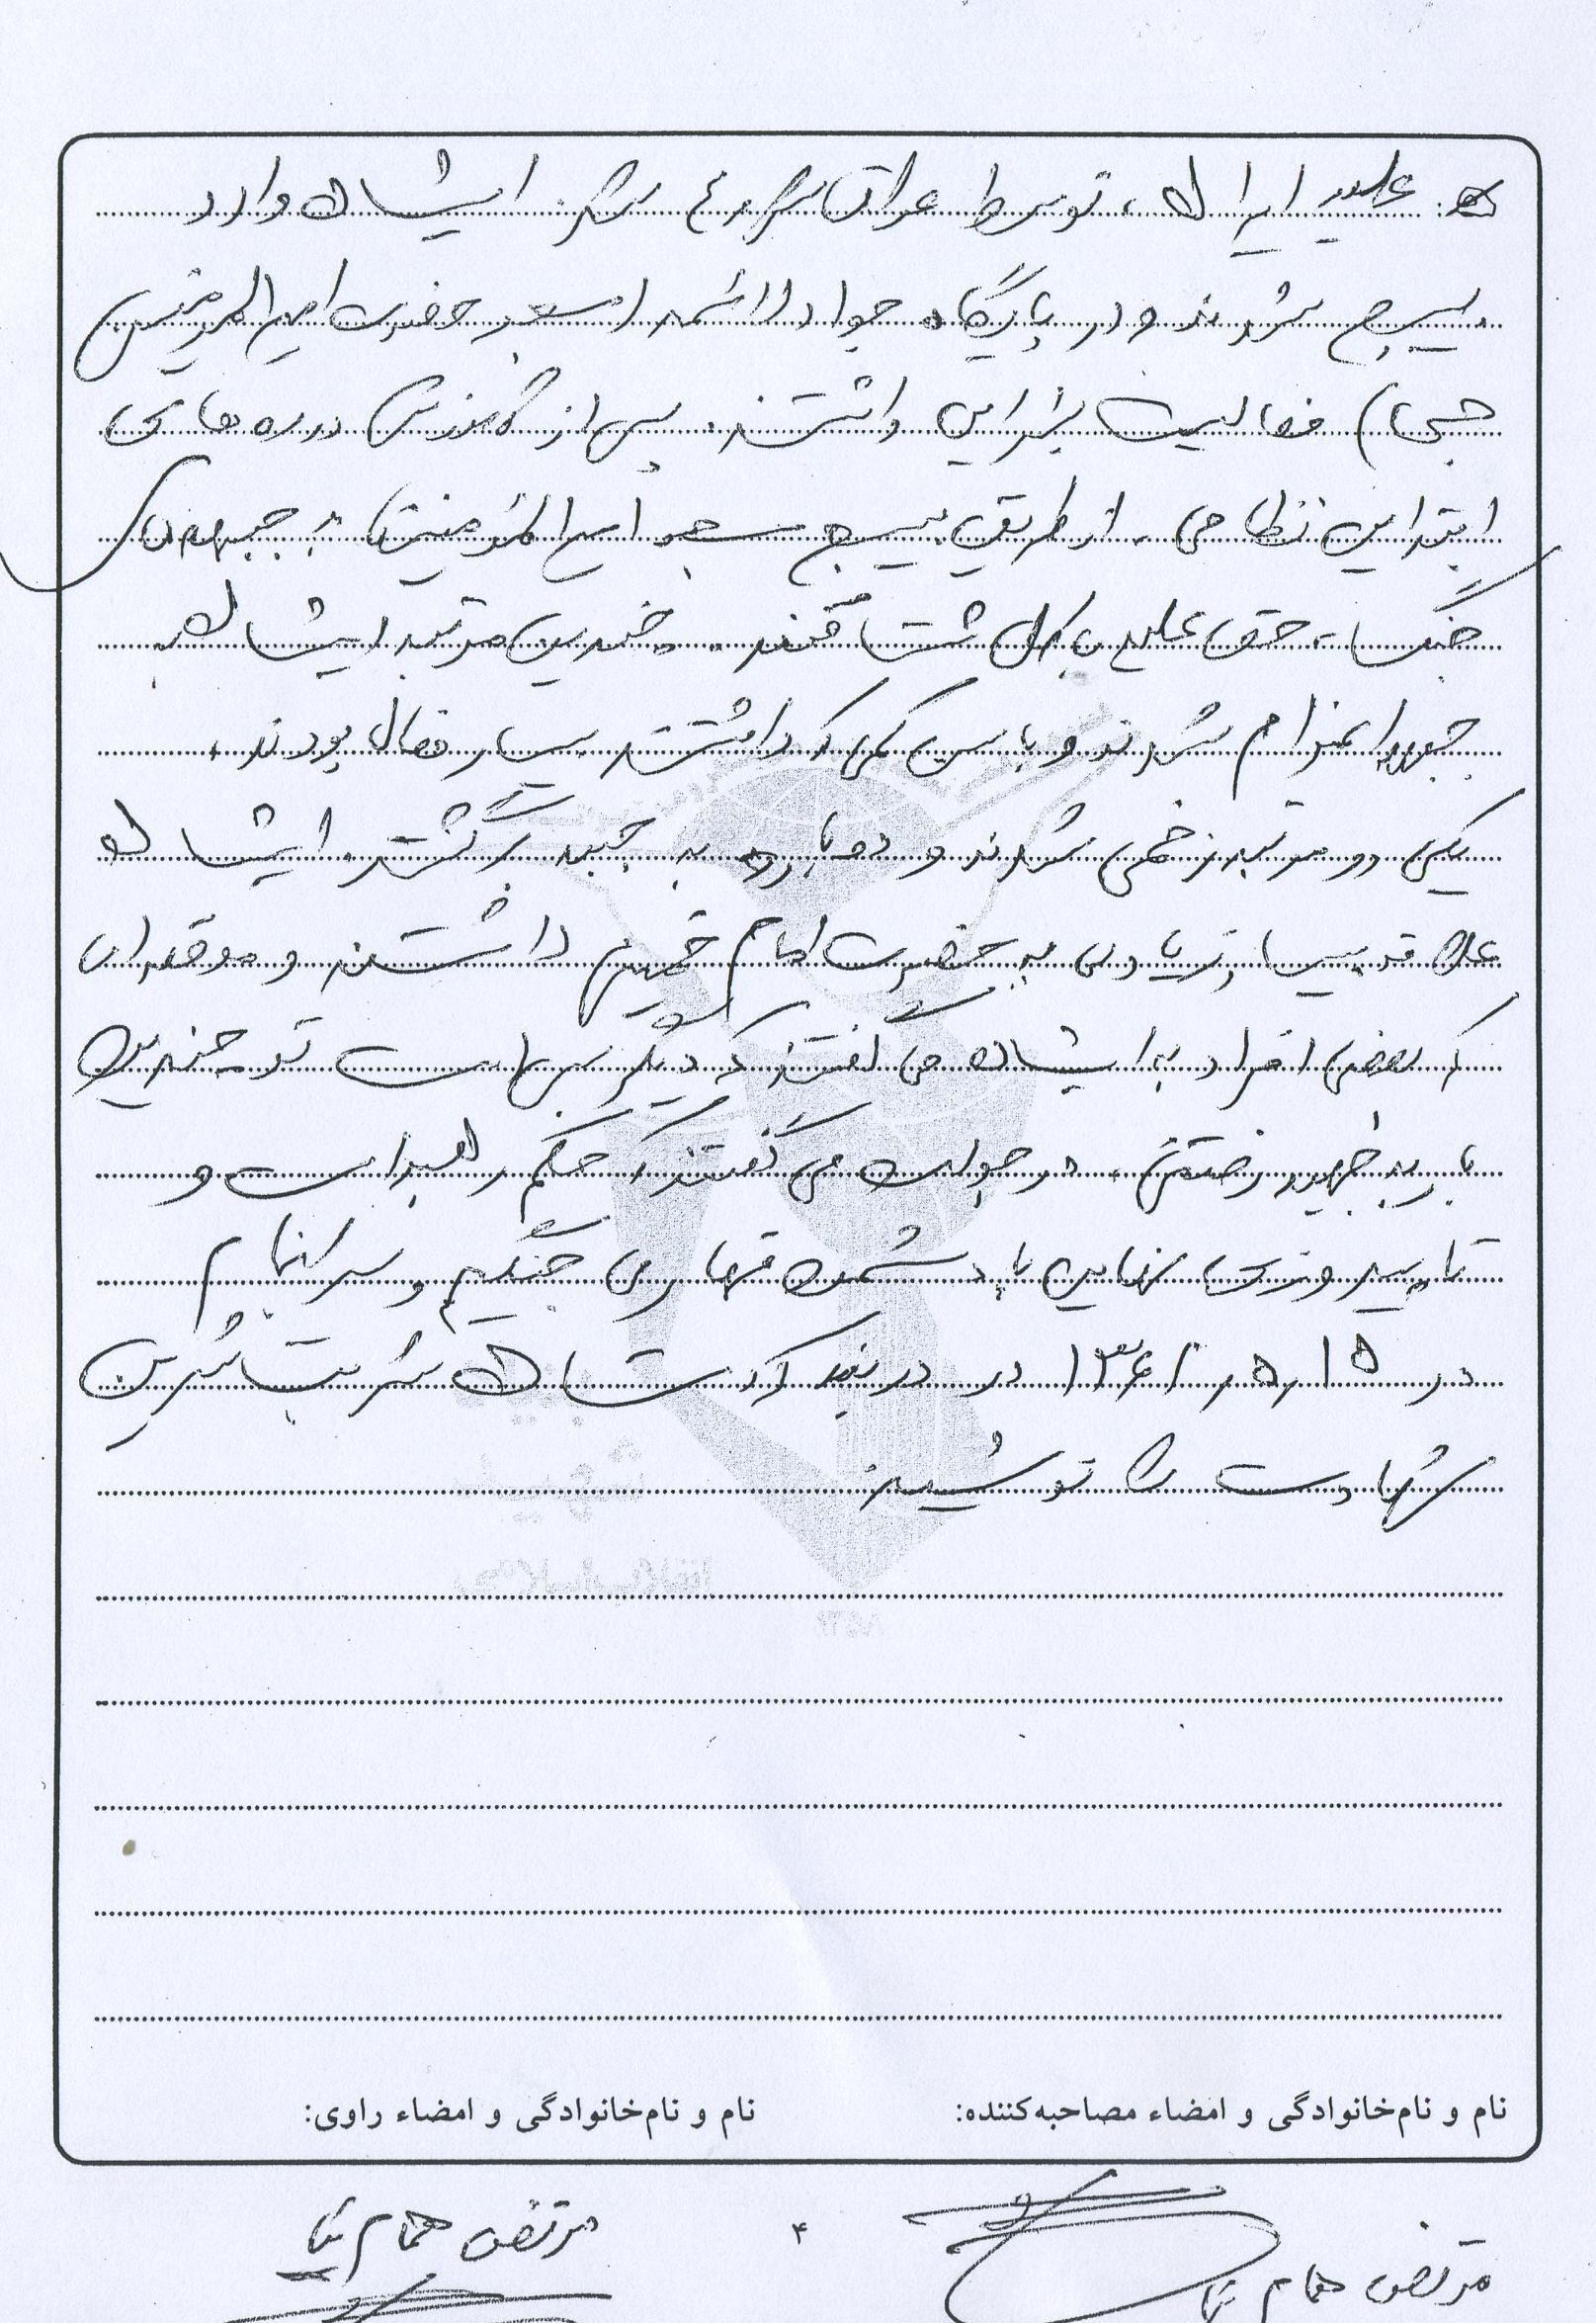 علیه ایران، توسط عراق شروع شد. ایشان وارد
بسیج شدند و در پایگاه جواد الائمه (مسجد حضرت امیرالمومنین
فعالیت بسزایی داشتند. پس از آموزش دوره های
ابتدایی نظامی، از طریق بسیج مسجد امیرالمؤمنین به جبهه های
جنگ حق علیه باطل شتافتند. چندین مرتبه ایشان به
جبهه اعزام شدند و با سن کمی که داشتند بسیار فعال بودند.
یکی دو مرتبه زخمی شدند و دوباره به جبهه برگشتند. ایشان
علاقه بسیار زیادی به حضرت امام خمینی داشتند و موقعه ای
که بعضی افراد به ایشان می گفتند که دیگر بس است تو چندین
بار به جبهه رفتی، در جواب می گفتند که حکم رهبر است و
تا پیروزی نهایی با دشمن می جنگیم و سرانجام
در ۱۵ ر ۵ ر ۱۳۶۲ در شربت شیرین
شهادت را نوشیدند
نام و نام‌خانوادگی و امضاء مصاحبه‌کننده: نام و نام‌خانوادگی و امضاء راوی:
مرتضی همام نیا ۴ مرتضی همام نیا